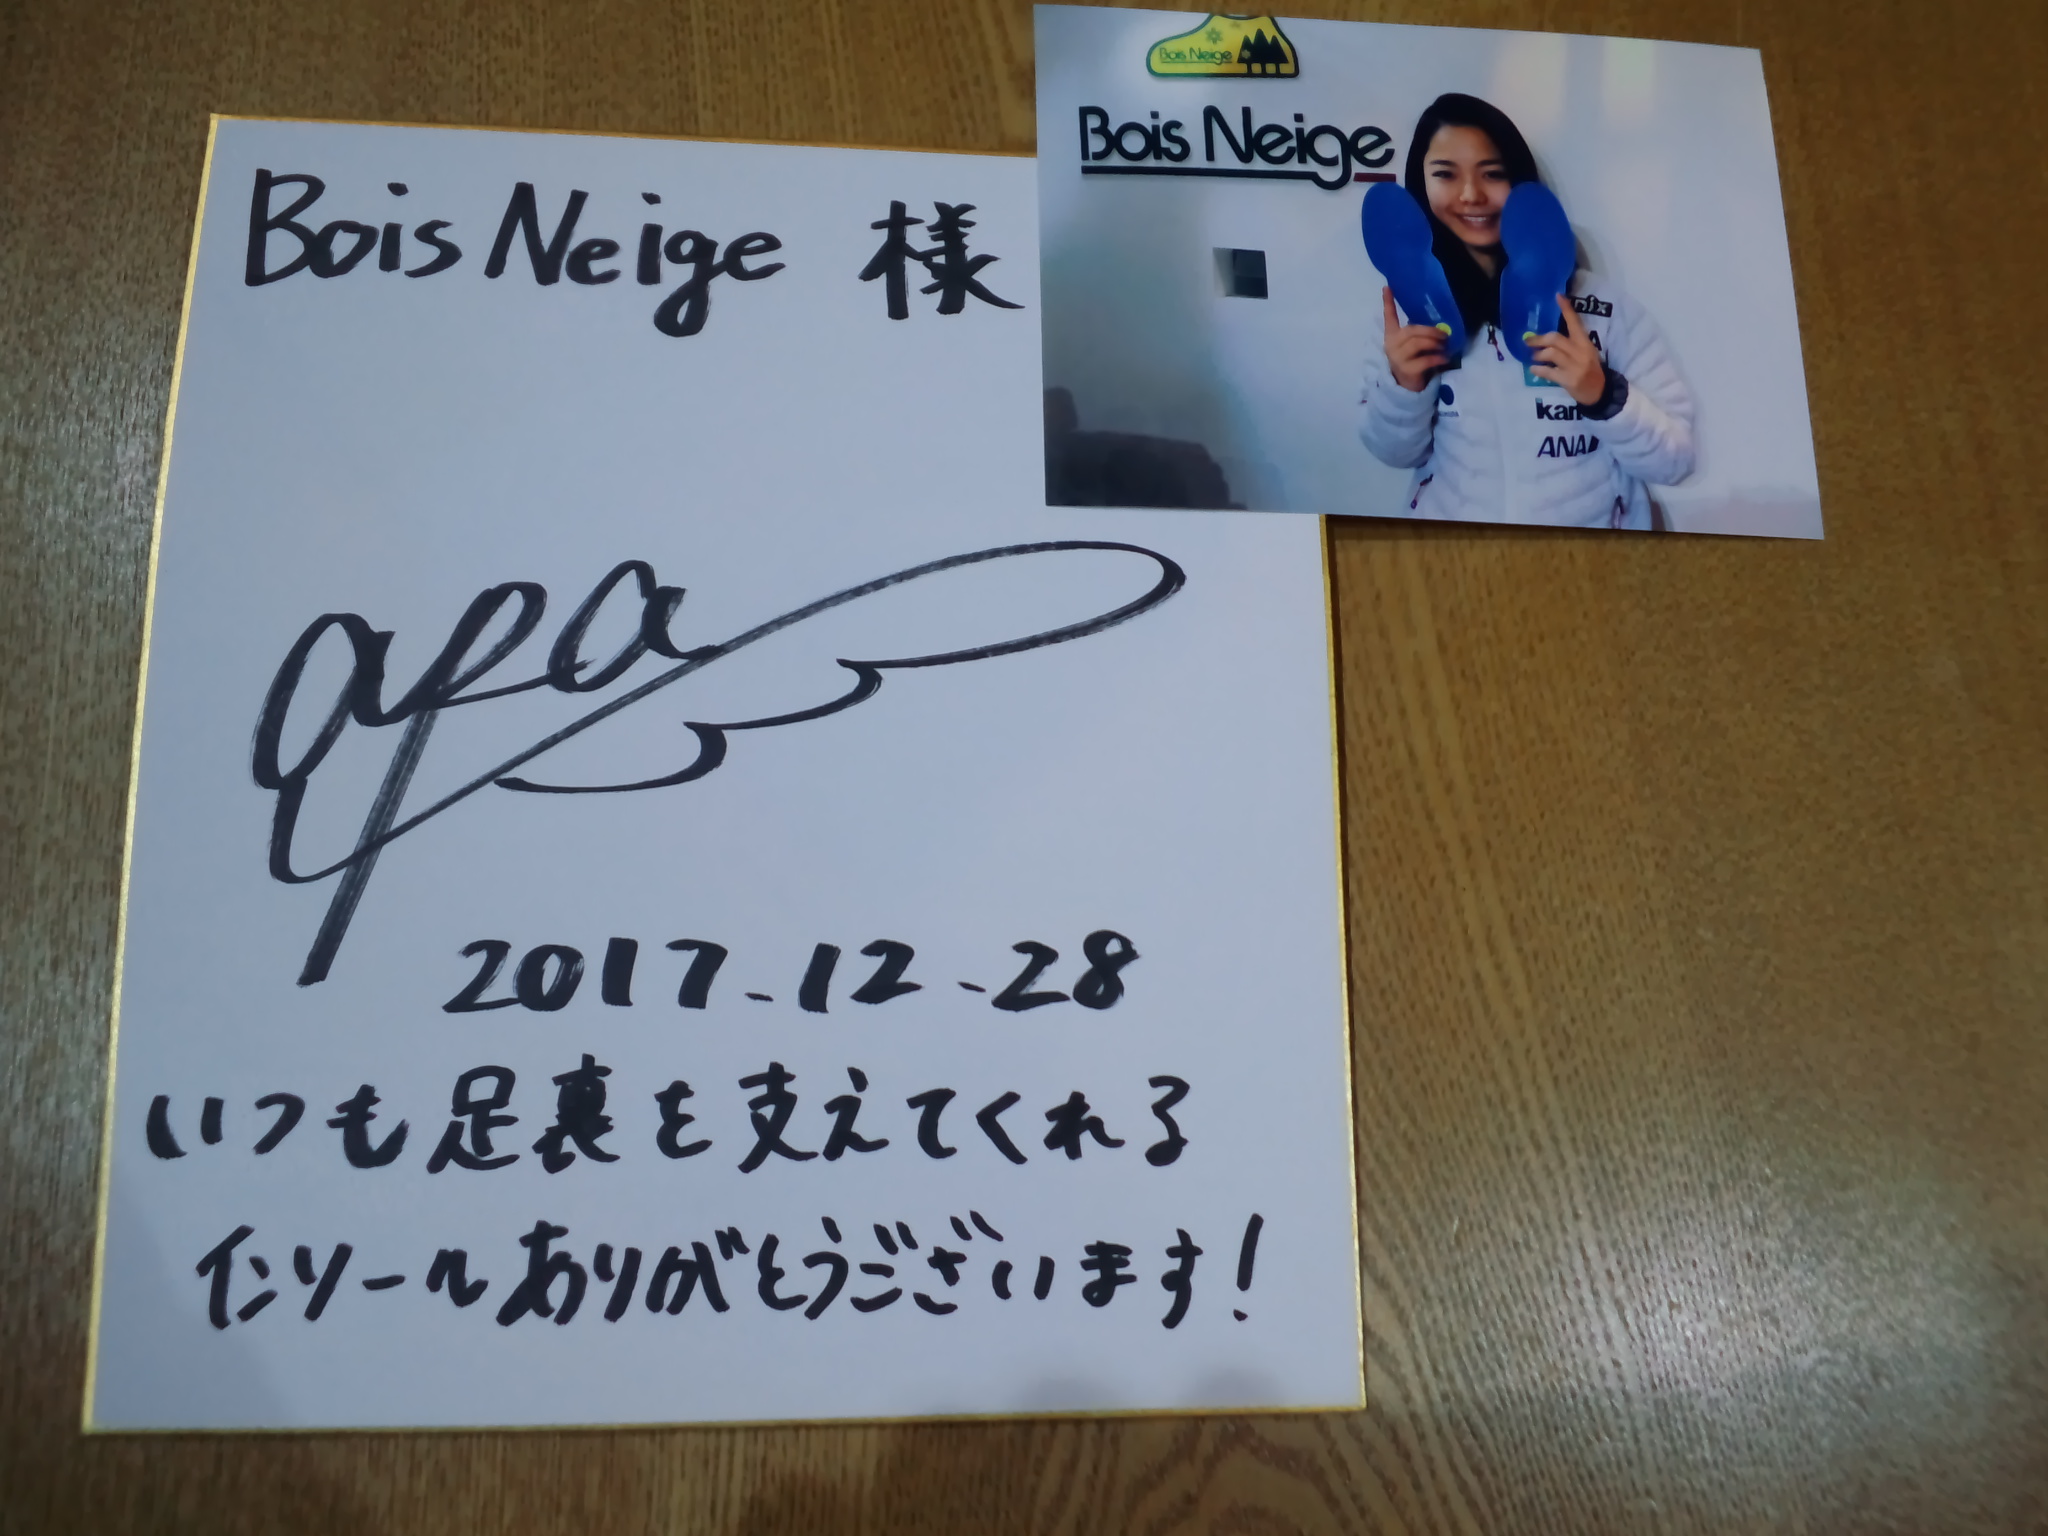 Bois Neige 様
2017.12.28
いつも足裏を支えてくれる
インソールありがとうございます!
Bois Neige
Bois Neige
nix
ikan
ANA